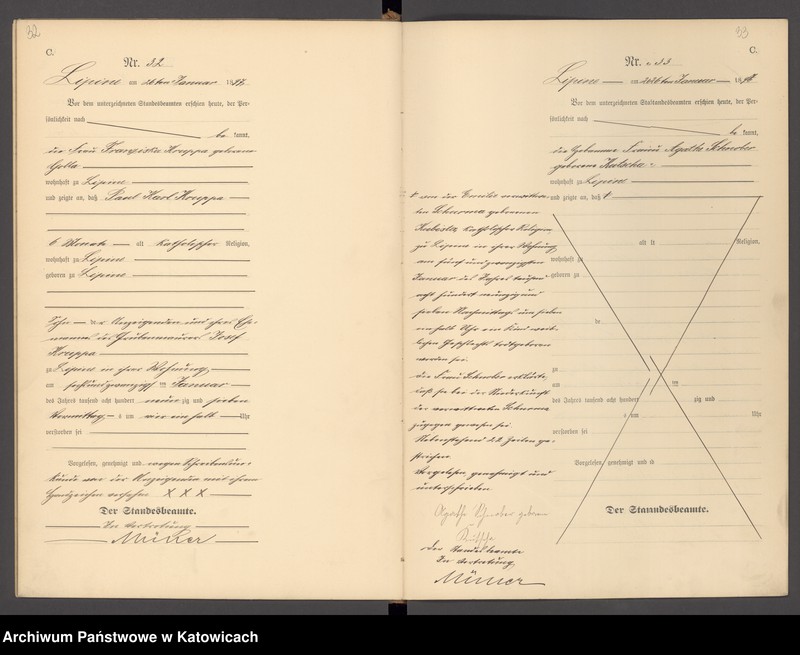 32
C.
Nr. 32
Lipine am 26ten Januar 1897
Vor dem unterzeichneten Standesbeamten erschien heute, der Per-
sönlichkeit nach
be kannt,
die Frau Franziska Kruppa geborene
wohnhaft zu Lipine
und zeigte an, daß Paul Karl Kruppa
6 Monate alt katholischer Religion,
wohnhaft zu Lipine
geboren zu Lipine
Sohn der Anzeigenden und ihres Ehe-
mannes des Josef
Kruppa
zu Lipine in ihrer Wohnung,
am sechsundzwanzigsten Januar
des Jahres tausend acht hundert neun zig und sieben
Vormittags um vier ein halb Uhr
verstorben sei
Vorgelesen, genehmigt und wegen Schreibensun-
kunde von der Anzeigenden mit ihrem
Handzeichen versehen X X X
Der Standesbeamte.
In Vertretung
Müller
33
C.
Nr. 33
Lipine am 26ten Januar 1897
Vor dem unterzeichneten Standesbeamten erschien heute, der Per-
sönlichkeit nach
be kannt,
die Hebamme Frau Agathe
geborene
wohnhaft zu Lipine
und zeigte an, daß
alt Religion,
wohnhaft zu
geboren zu
zu
am
des Jahres tausend acht hundert zig und
um Uhr
verstorben sei
Vorgelesen, genehmigt und
Der Standesbeamte.
von der Emilie verwittwe-
ten geborenen
katholischer Religion,
zu Lipine in ihrer Wohnung
am fünf und zwanzigsten
Januar des Jahres tausend
acht hundert neunzig und
sieben Nachmittags um sieben
ein halb Uhr ein Kind weib-
lichen Geschlechts todtgeboren
worden sei.
Die Frau erklärte,
daß sie bei der Niederkunft
der verwittweten
zugegen gewesen sei.
Nebenstehend 22 Zeilen ge-
strichen
Vorgelesen, genehmigt und
unterschrieben
Agathe geborene
Der Standesbeamte
In Vertretung
Müller
Archiwum Państwowe w Katowicach